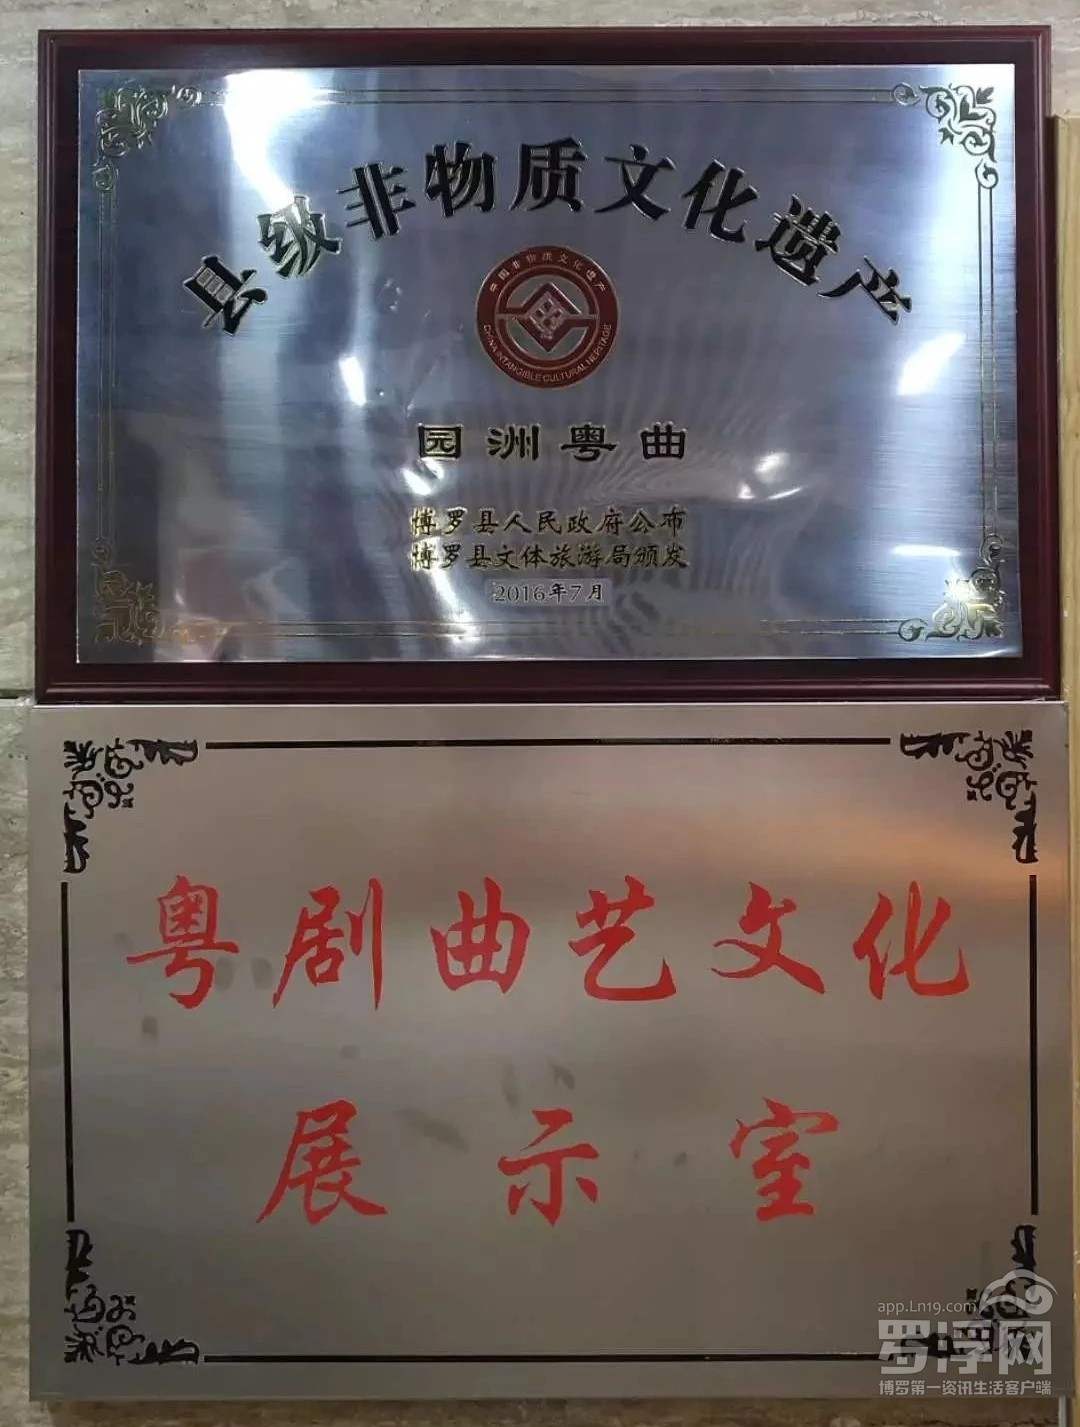 县级非物质文化遗产
中国非物质文化遗产
CHINA INTANGIBLE CULTURAL HERITAGE
园洲粤曲
博罗县人民政府公布
博罗县文体旅游局颁发
2016年7月
粤剧曲艺文化
展示室
app.Ln19.com
罗浮网
博罗第一资讯生活客户端